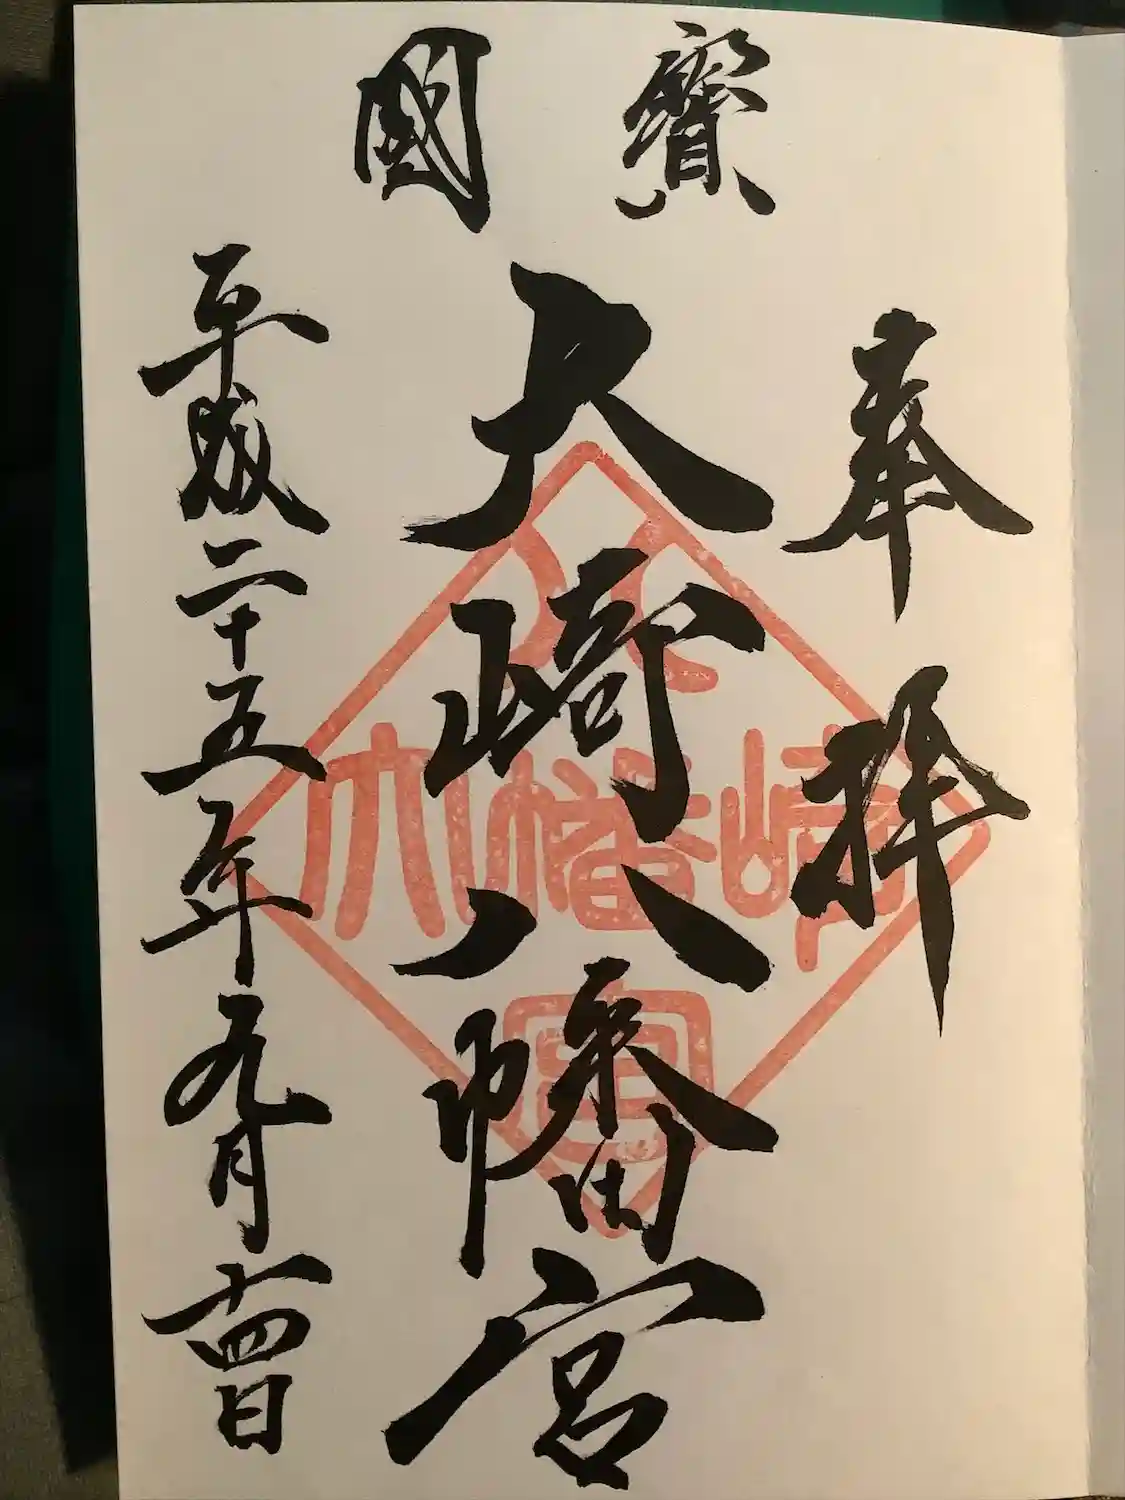 國寳
奉拝
大崎八幡宮
平成二十五年九月十四日
八
大幡崎
宮